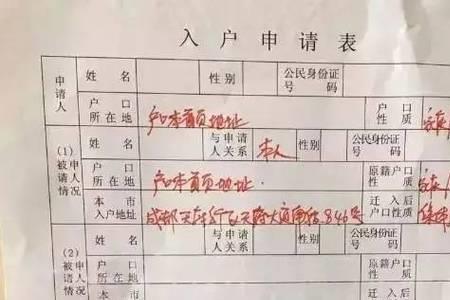 入户申请表
申请人 姓名 性别 公民身份证号码
户口所在地 户口本首页地址 户口性质
(1)被申请人情况 姓名 与申请人关系 本人 性别 公民身份证号码
户口所在地 户口本首页地址. 原籍户口性质
本市入户地址 成都 天府 迁入后户口性质
(2)被申请人情况 姓名 与申请人关系 性别 公民身份证号码
户口 原籍户口